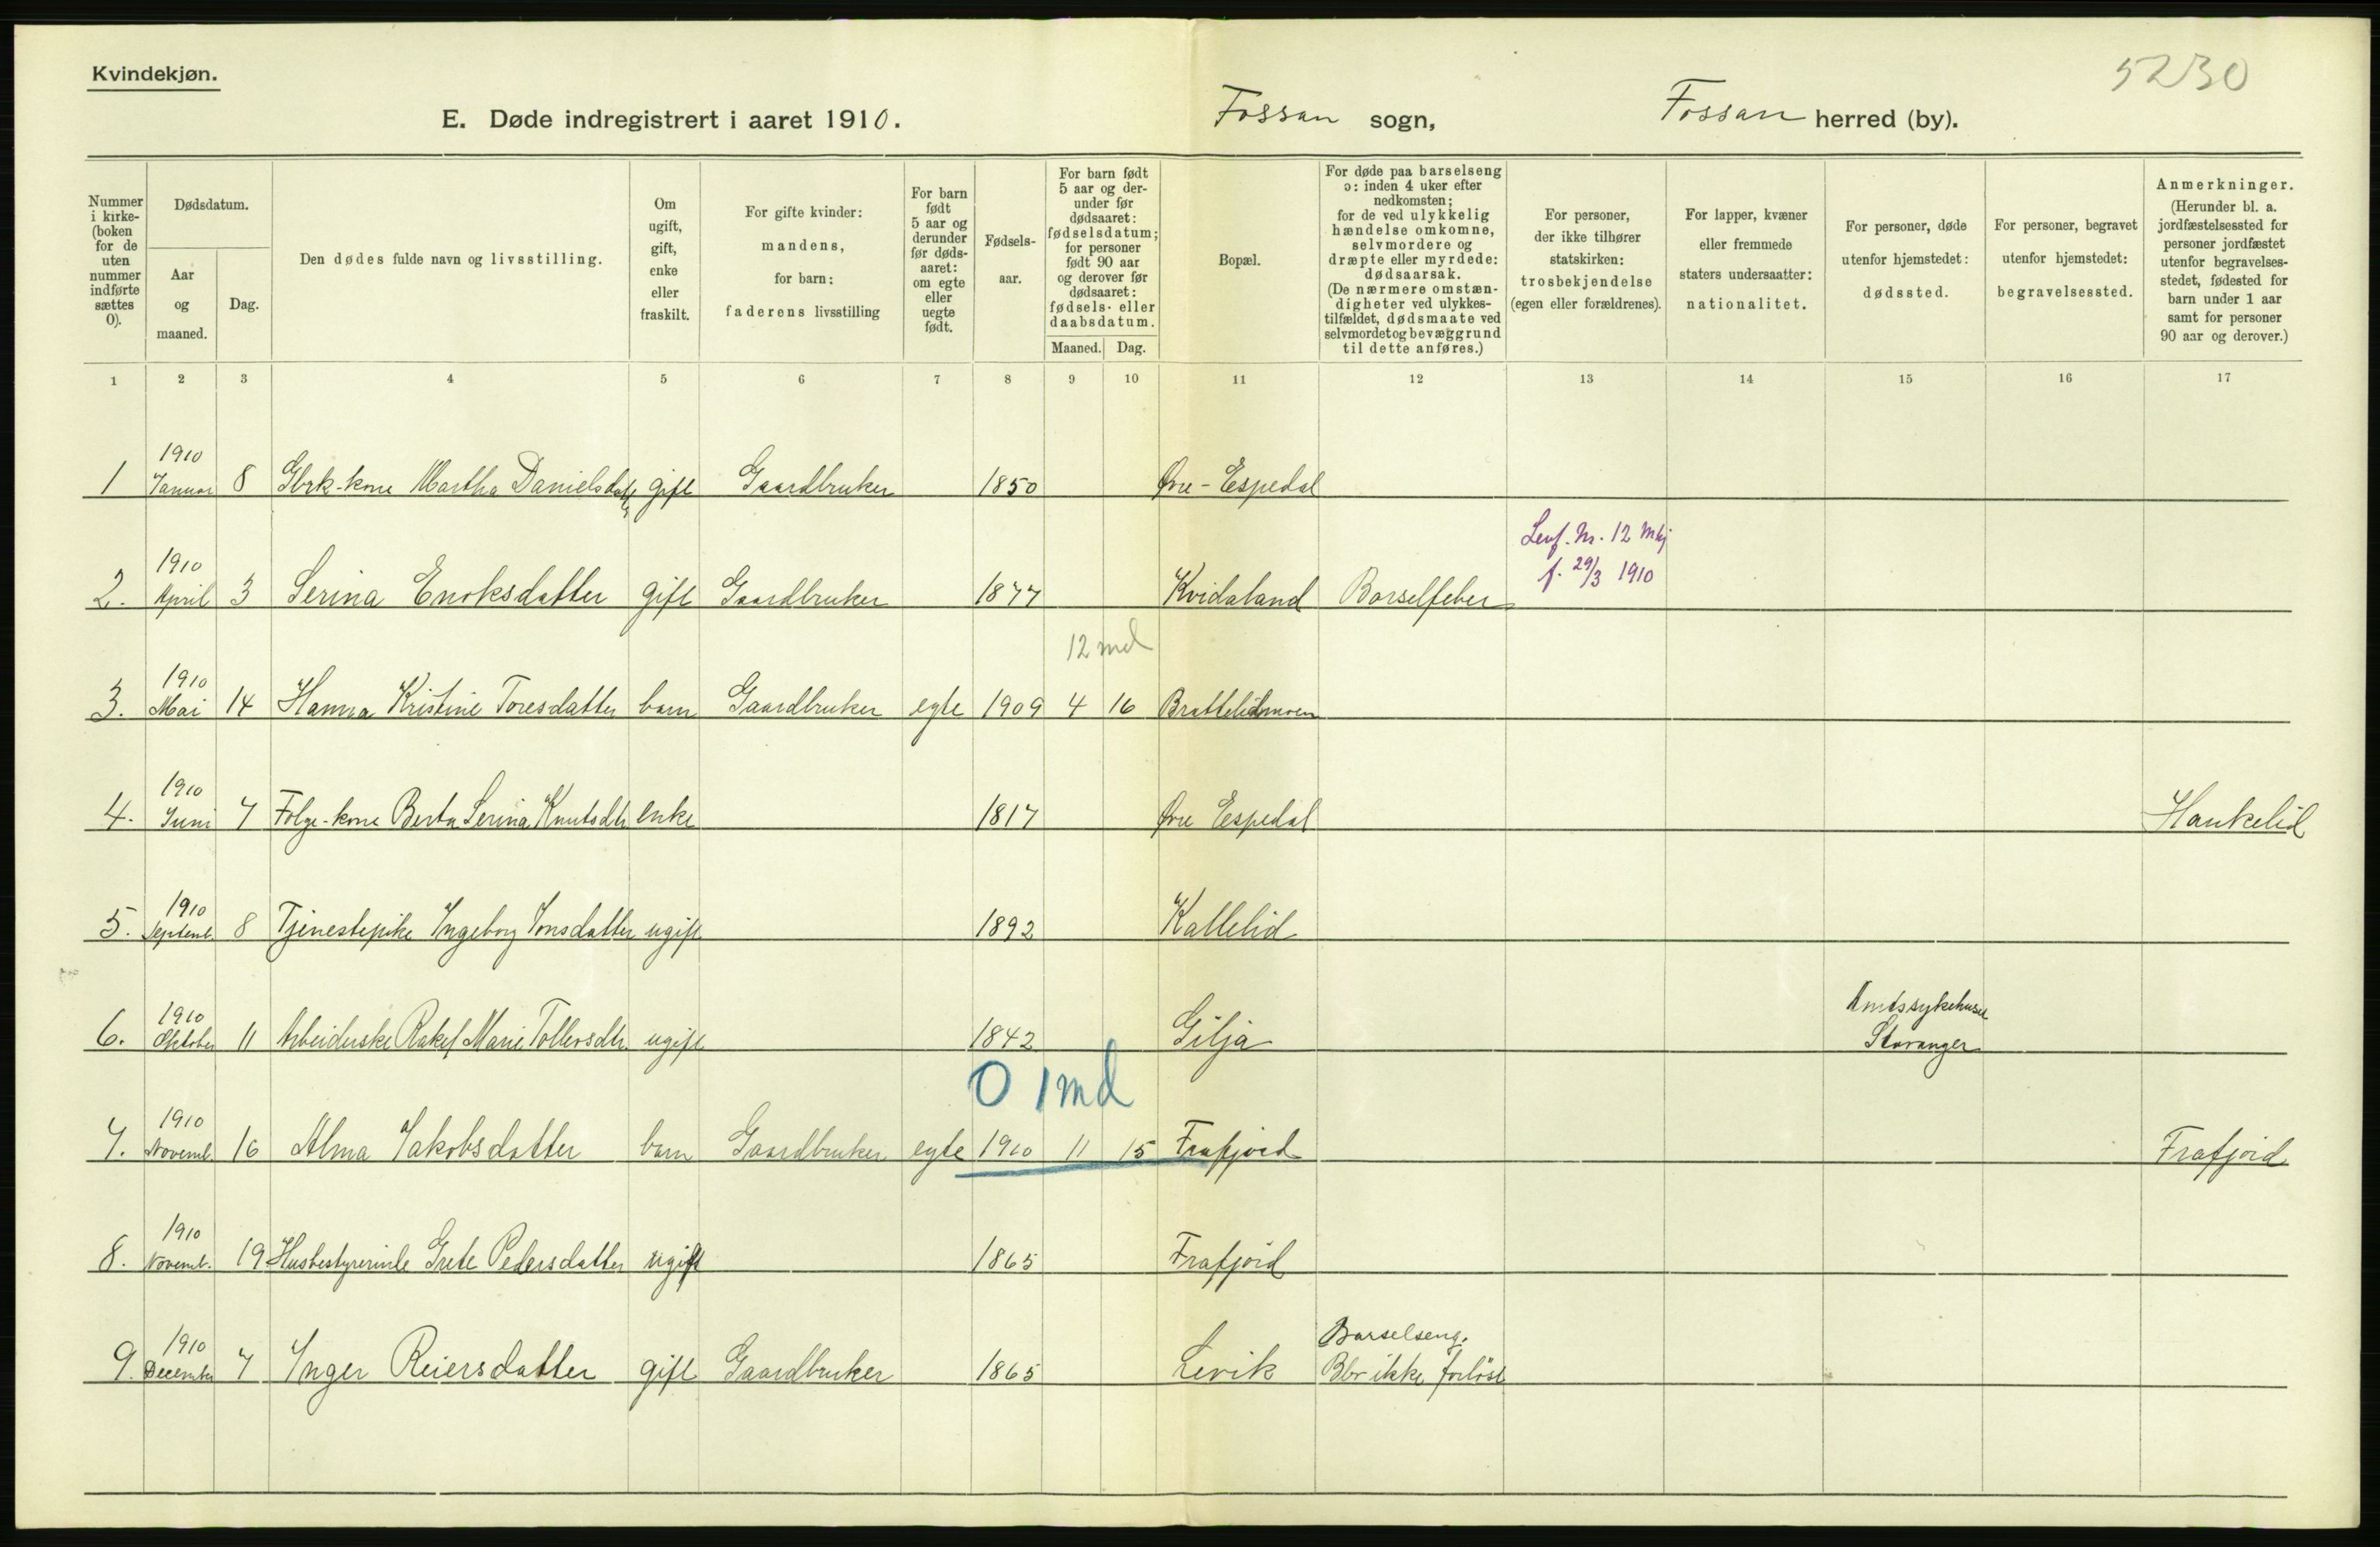 Kvindekjøn.
5230
E. Døde indregistrert i aaret 1910. Fossan sogn, Fossan herred (by).
Nummer i kirke-(boken for de uten nummer indførte sættes 0).
Dødsdatum.
Aar og maaned.
Dag.
Den dødes fulde navn og livsstilling.
Om ugift, gift, enke eller fraskilt.
For gifte kvinder: mandens, for barn: faderens livsstilling
For barn født 5 aar og derunder før døds-aaret: om egte eller uegte født.
Fødsels-aar.
For barn født 5 aar og der-under før dødsaaret: fødselsdatum; for personer født 90 aar og derover før dødsaaret: fødsels- eller daabsdatum.
Maaned. Dag.
Bopæl.
For døde paa barselseng ɔ: inden 4 uker efter nedkomsten; for de ved ulykkelig hændelse omkomne, selvmordere og dræpte eller myrdede: dødsaarsak. (De nærmere omstæn-digheter ved ulykkes-tilfældet, dødsmaate ved selvmordet og bevæggrund til dette anføres.)
For personer, der ikke tilhører statskirken: trosbekjendelse (egen eller forældrenes).
For lapper, kvæner eller fremmede staters undersaatter: nationalitet.
For personer, døde utenfor hjemstedet: dødssted.
For personer, begravet utenfor hjemstedet: begravelsessted.
Anmerkninger. (Herunder bl. a. jordfæstelsessted for personer jordfæstet utenfor begravelses-stedet, fødested for barn under 1 aar samt for personer 90 aar og derover.)
1 2 3 4 5 6 7 8 9 10 11 12 13 14 15 16 17
1910
1 Januar 8 Gbrk-kone Martha Danielsdatter gift Gaardbruker 1850 Øvre-Espedal
Levf. Nr. 12 Mkj
f. 29/3 1910
1910
2. April 3 Serina Enoksdatter gift Gaardbruker 1877 Kvidaland Barselfeber
12 md
1910
3. Mai 14 Hanna Kristine Toresdatter barn Gaardbruker egte 1909 4 16 Brattelidmoen
1910
4. Juni 7 Folge-kone Berta Serina Knutsdtr enke 1817 Øvre Espedal Hankelid
1910
5. Septemb. 8 Tjenestepike Ingeborg Tonsdatter ugift 1892 Kallelid
1910 Amtssykehuset
6. Oktober 11 Arbeiderske Rakel Marie Tollevsdtr. ugift 1842 Gilja Stavanger
0 1 md
1910
7. Novemb. 16 Alma Jakobsdatter barn Gaardbruker egte 1910 11 15 Frafjord Frafjord
1910
8. Novemb. 19 Husbestyrerinde Grete Pedersdatter ugift 1865 Frafjord
1910 Barselseng.
9. December 7 Inger Reiersdatter gift Gaardbruker 1865 Levik Blev ikke forløst